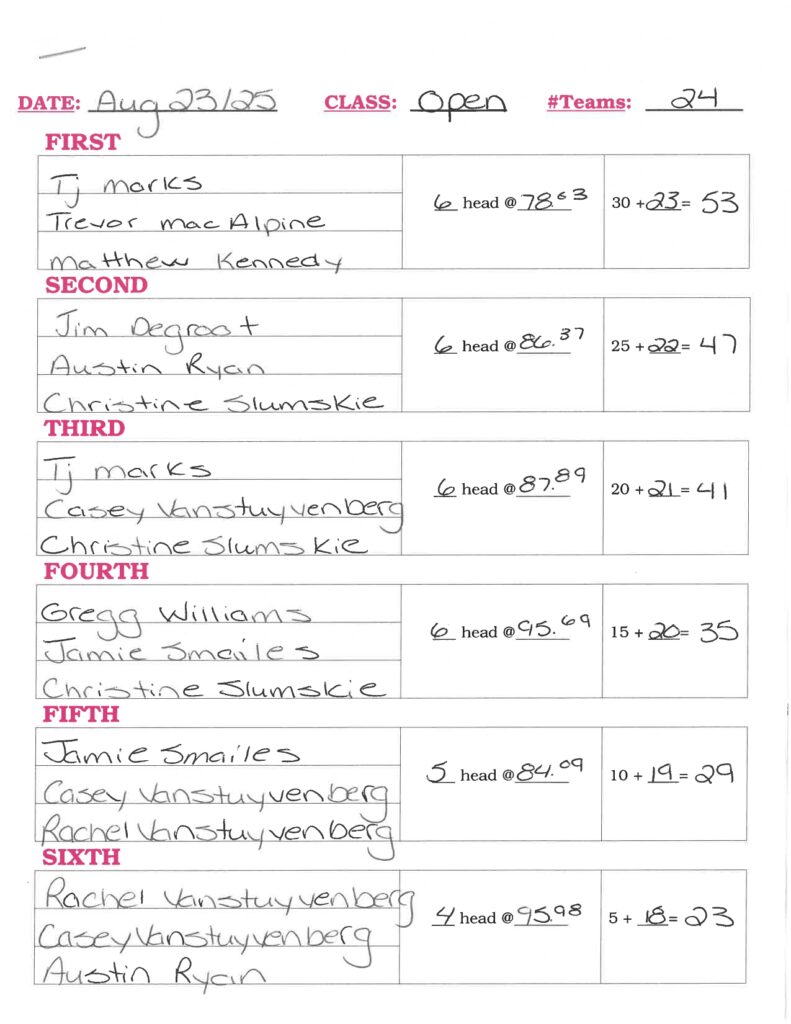 DATE: Aug 23/25 CLASS: Open #Teams: 24
FIRST
Tj marks
Trevor mac Alpine
matthew Kennedy
6 head @ 78.63
30 + 23 = 53
SECOND
Jim Degroot
Austin Ryan
Christine Slumskie
6 head @ 86.37
25 + 22 = 47
THIRD
Tj marks
Casey Vanstuyvenberg
Christine Slumskie
6 head @ 87.89
20 + 21 = 41
FOURTH
Gregg Williams
Jamie Smailes
Christine Slumskie
6 head @ 95.69
15 + 20 = 35
FIFTH
Jamie Smailes
Casey Vanstuyvenberg
Rachel Vanstuyvenberg
5 head @ 84.09
10 + 19 = 29
SIXTH
Rachel Vanstuyvenberg
Casey Vanstuyvenberg
Austin Ryan
4 head @ 95.98
5 + 18 = 23